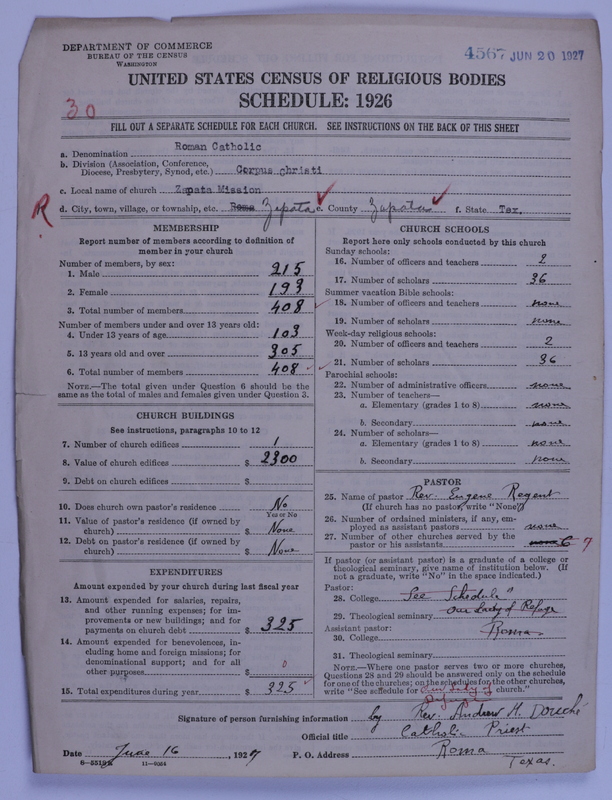 DEPARTMENT OF COMMERCE
BUREAU OF THE CENSUS
WASHINGTON
4567 JUN 20 1927
UNITED STATES CENSUS OF RELIGIOUS BODIES
SCHEDULE: 1926
30
FILL OUT A SEPARATE SCHEDULE FOR EACH CHURCH. SEE INSTRUCTIONS ON THE BACK OF THIS SHEET
a. Denomination Roman Catholic
b. Division (Association, Conference, Diocese, Presbytery, Synod, etc.) Corpus Christi
c. Local name of church Zapata Mission
R d. City, town, village, or township, etc. Roma Zapata e. County Zapata f. State Tex.
MEMBERSHIP
Report number of members according to definition of
member in your church
Number of members, by sex:
1. Male 215
2. Female 193
3. Total number of members 408
Number of members under and over 13 years old:
4. Under 13 years of age 103
5. 13 years old and over 305
6. Total number of members 408
NOTE.—The total given under Question 6 should be the
same as the total of males and females given under Question 3.
CHURCH BUILDINGS
See instructions, paragraphs 10 to 12
7. Number of church edifices 1
8. Value of church edifices $ 2300
9. Debt on church edifices $
10. Does church own pastor's residence No
Yes or No
11. Value of pastor's residence (if owned by
church) $ None
12. Debt on pastor's residence (if owned by
church) $ None
EXPENDITURES
Amount expended by church during last fiscal year
13. Amount expended for salaries, repairs,
and other running expenses; for im-
provements or new buildings; and for
payments on church debt $ 325
14. Amount expended for benevolences, in-
cluding home and foreign missions; for
denominational support; and for all
other purposes $ 0
15. Total expenditures during year $ 325
CHURCH SCHOOLS
Report here only schools conducted by this church
Sunday schools:
16. Number of officers and teachers 2
17. Number of scholars 36
Summer vacation Bible schools:
18. Number of officers and teachers none
19. Number of scholars none
Week-day religious schools:
20. Number of officers and teachers 2
21. Number of scholars 36
Parochial schools:
22. Number of administrative officers none
23. Number of teachers—
a. Elementary (grades 1 to 8) none
b. Secondary none
24. Number of scholars—
a. Elementary (grades 1 to 8) none
b. Secondary none
PASTOR
25. Name of pastor Rev. Eugene Regent
(If church has no pastor, write "None")
26. Number of ordained ministers, if any, em-
ployed as assistant pastors none
27. Number of other churches served by the
pastor or his assistants none 6 7
If pastor (or assistant pastor) is a graduate of a college or
theological seminary, give name of institution below. (If
not a graduate, write "No" in the space indicated.)
Pastor:
28. College See Schedule"
29. Theological seminary Our Lady of Refuge
Assistant pastor:
30. College Roma
31. Theological seminary
NOTE.—Where one pastor serves two or more churches,
Questions 28 and 29 should be answered only on the schedule
for one of the churches; on the schedules for the other churches,
write "See schedule for Our Lady of Refuge church."
Signature of person furnishing information by Rev. Andrew H. Douché
Official title Catholic Priest
Date June 16, 1927 P. O. Address Roma
Texas.
11—9024